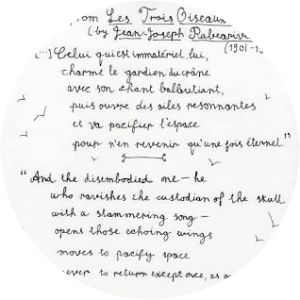 om Les Trois Oiseaux
(by Jean-Joseph
(1901-
(...) Celui qui est immatériel lui,
charme le gardien du crâne
avec son chant balbutiant,
puis ouvre des ailes résonnantes
et va pacifier l'espace
pour n'en revenir qu'une fois éternel."
"And the disembodied one – he
who ravishes the custodian of the skull
with a stammering song –
opens those echoing wings
moves to pacify space
never to return except once, as